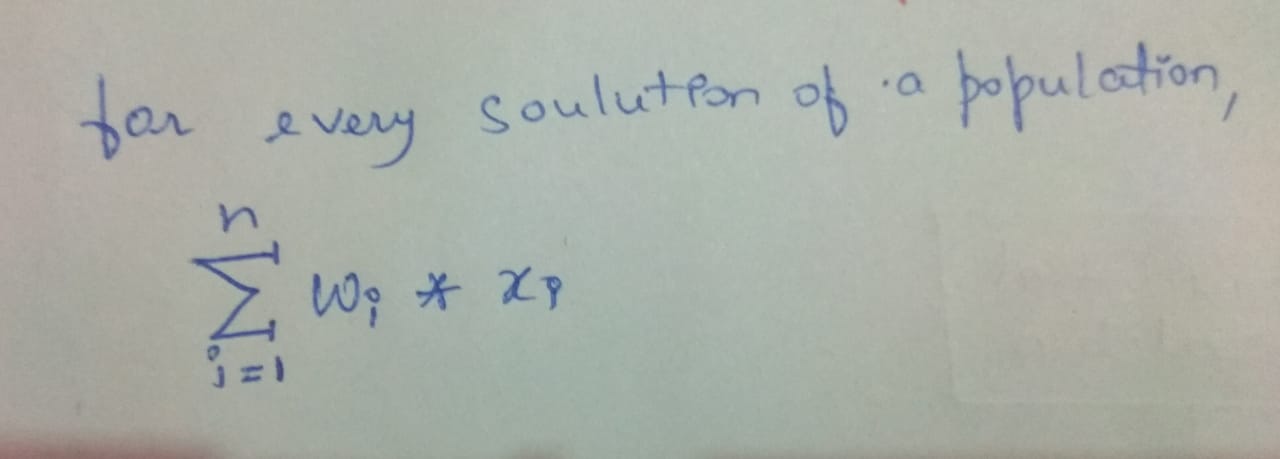 for every soulution of a population,
n
∑ wi * xi
i=1